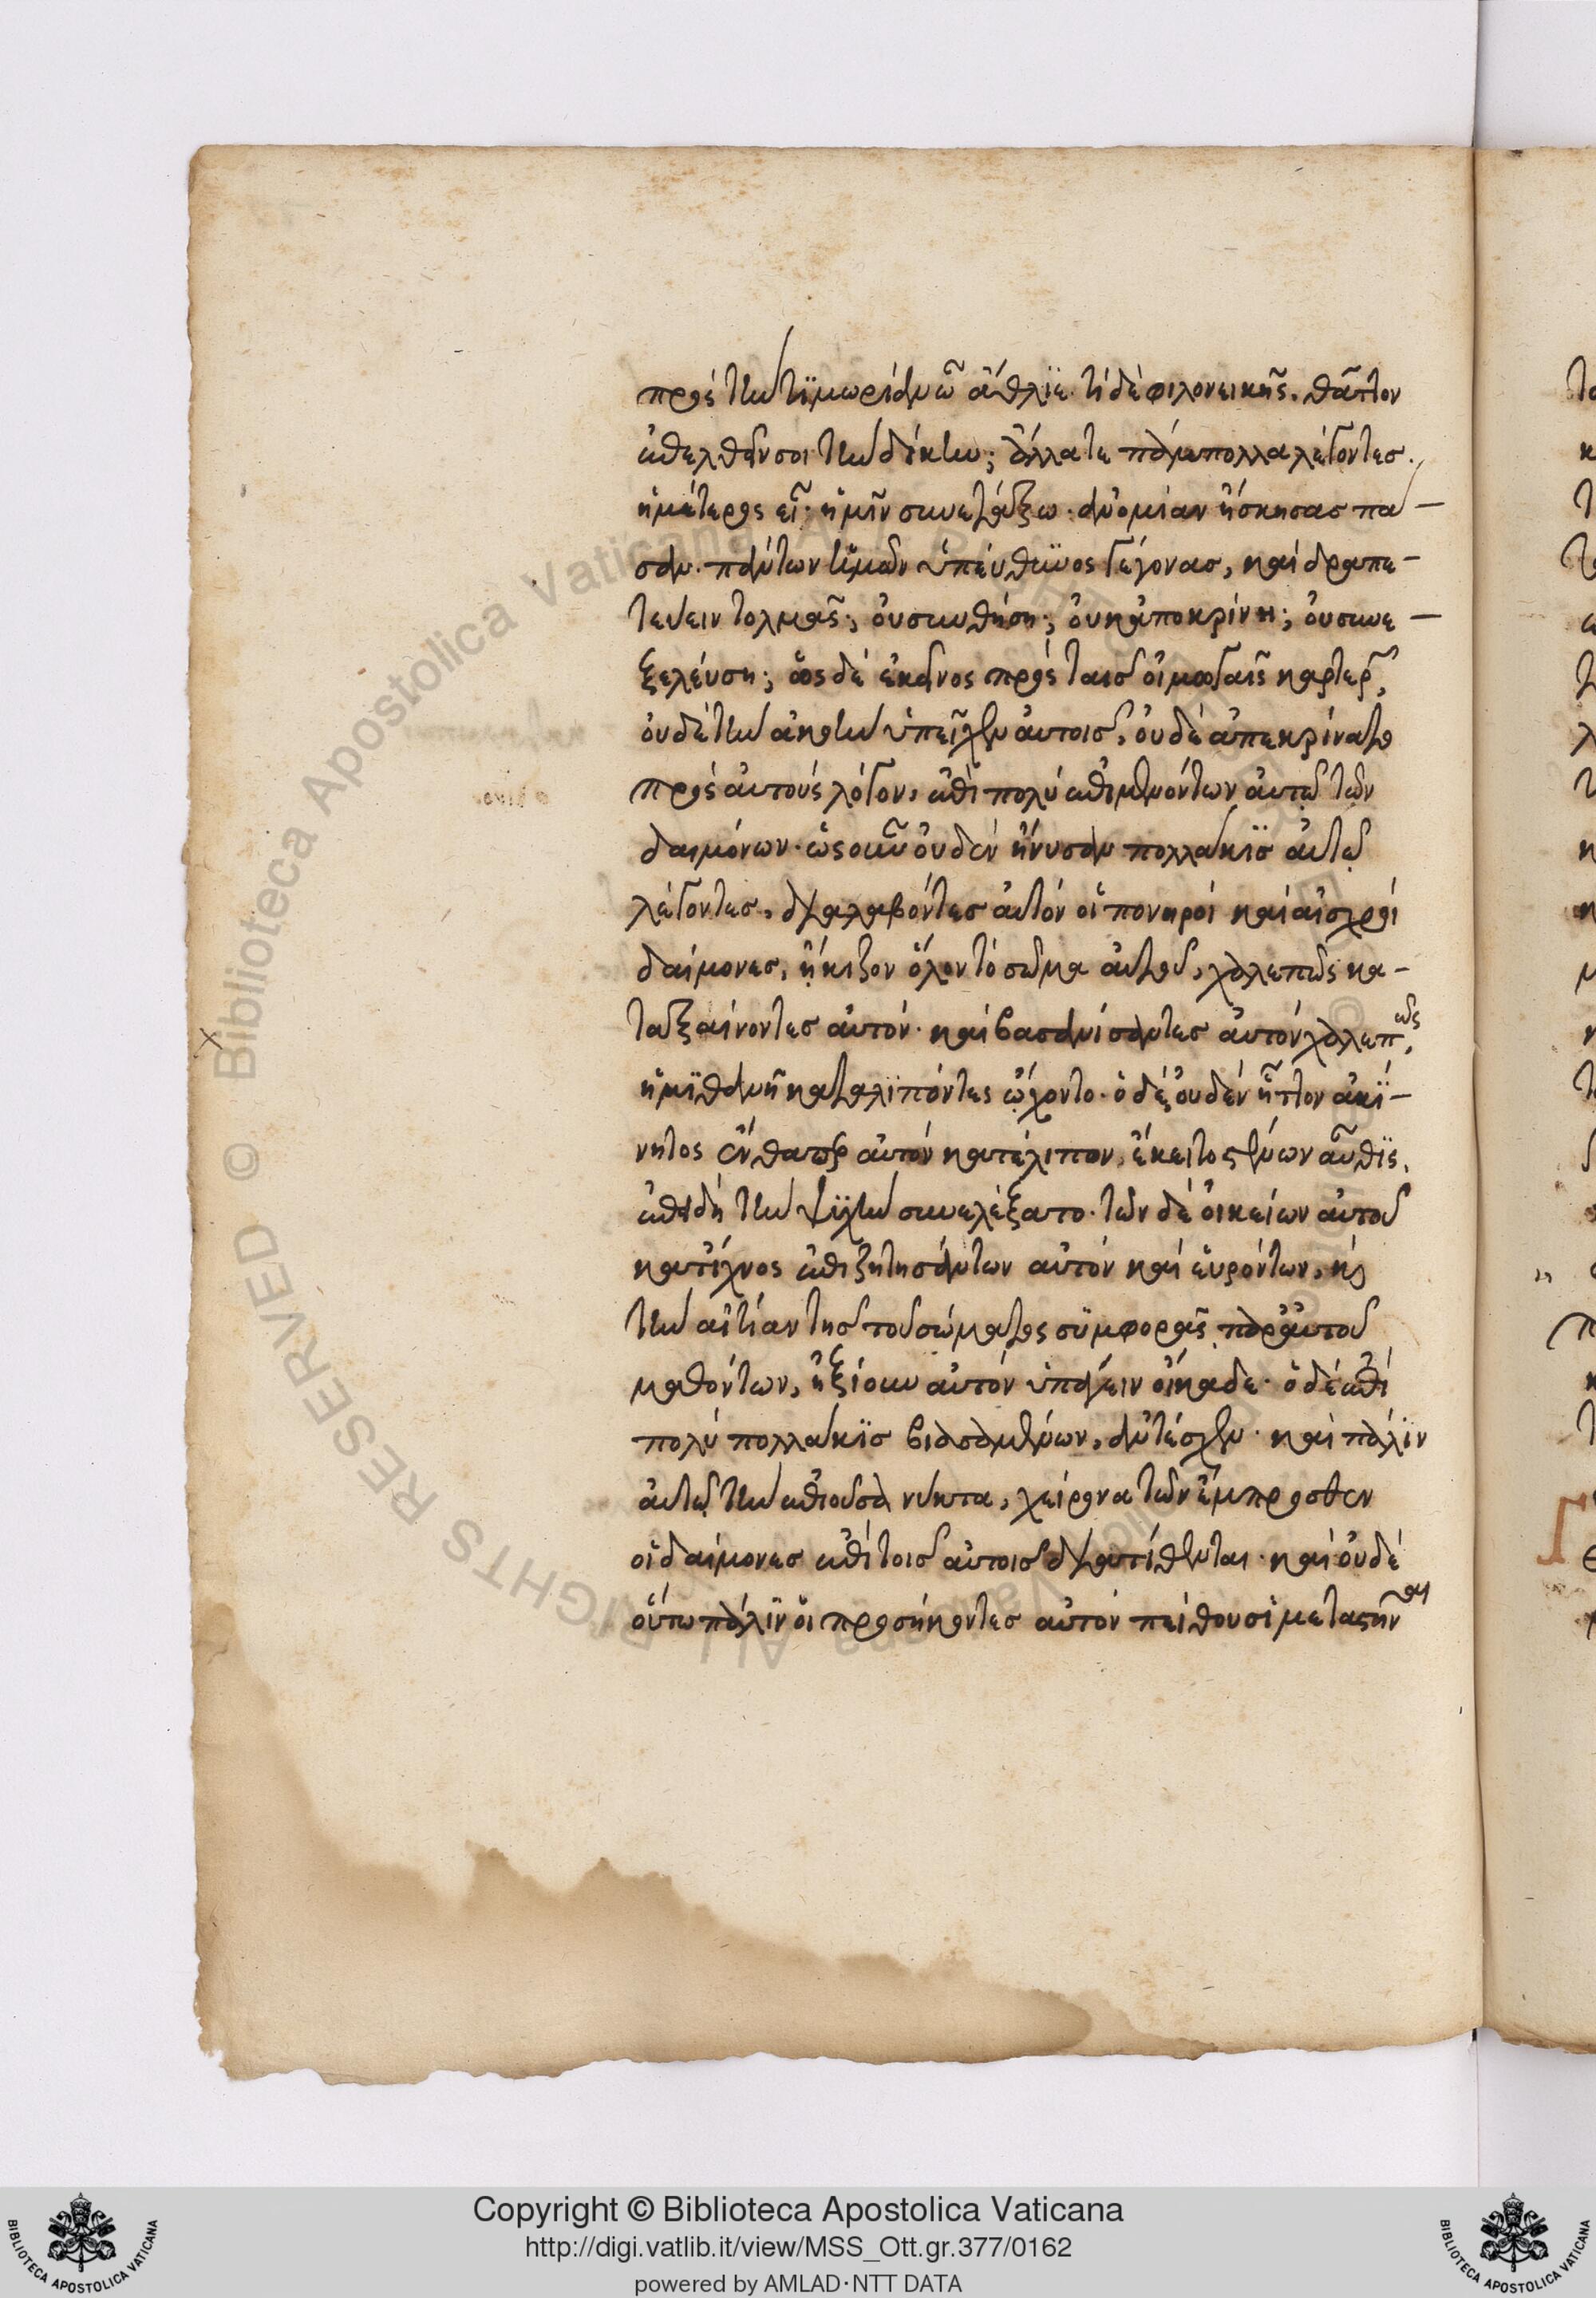 πρὸς τὴν τϊμωρίαν ὦ ἄθλϊε· τί δὲ φιλονεικῆς. θᾶττον
ἐπελθεῖν σοι τὴν δίκην; ἄλλά τε πάμπολλα λέγοντες.
ἡμέτερος εἶ· ἡμῖν συνετάξω· ἀνομίαν ἤσκησας πα-
σαν. πάντων ἡμῶν ὑπέυθϋνος γέγονας, καὶ δραπε-
τεύειν τολμᾶς; ὀυ σιωπήση; ὀυκ ἀποκρίνη; ὀυ συνε-
ξελέυση; ὡς δὲ ἐκεῖνος πρὸς ταῖς οἰμωγαῖς καρτερ
ὀυδὲ τὴν ἀκοὴν ὑπεῖχεν ἀυτοῖς, ὀυδὲ ἀπεκρίνατο
πρὸς ἀυτοὺς λόγον, ἐπὶ πολὺ ἐπιμενόντων ἀυτῷ τῶν
δαιμόνων· ὡς οὖν ὀυδὲν ἤνυσαν πολλάκϊς ἀυτῷ
λέγοντες, διαλαβόντες ἀυτὸν οἱ πονηροὶ καὶ αἰσχροὶ
δαίμονες, ἤκιζον ὅλον τὸ σῶμα ἀυτοῦ, χαλεπῶς κα-
ταξαίνοντες ἀυτόν· καὶ βασανίσαντες ἀυτὸν χαλεπῶς,
ἡμϊθανῆ καταλϊπόντες ᾤχοντο· ὁ δὲ ὀυδὲν ἧττον ἀκϊ-
νητος ἔνθαπερ ἀυτὸν κατέλιπον, ἔκειτο στένων ἆυθϊς,
ἐπειδὴ τὴν ψϋχὴν συνελέξατο· τῶν δὲ ὀικείων ἀυτοῦ
κατίχνος ἐπιζητησάντων ἀυτὸν καὶ ἑυρόντων, καὶ
τὴν αἰτίαν τῆς τοῦ σώματος συμφορᾶς παρ' ἀυτοῦ
μαθόντων, ἠξίουν ἀυτὸν ὑπάγειν ὄικαδε· ὁ δὲ ἐπὶ
πολὺ πολλάκϊς βιασαμένων, ἀντέσχεν· καὶ πάλϊν
ἀυτῷ τὴν ἐπιοῦσα νύκτα, χείρονα τῶν ἔμπροσθεν
οἱ δαίμονες ἐπὶ τοῖς ἀυτοῖς διατίθενται· καὶ ὀυδὲ
ὅυτω πάλϊν ὁι προσήκοντες ἀυτὸν πείθουσι μεταστῆναι